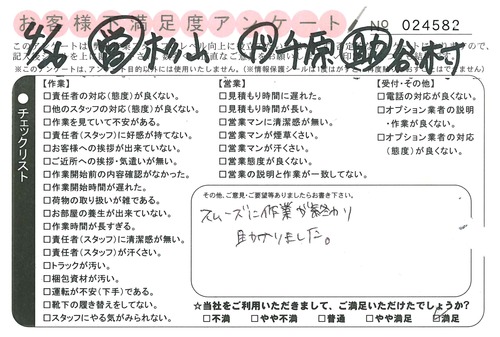 お客様不満足度アンケート
No 024582
営 杉山 作 原 助 谷村
※このアンケートは、アンケート目的以外には使用いたしません。
チェックリスト
【作業】
□責任者の対応(態度)が良くない。
□他のスタッフの対応(態度)が良くない。
□作業を見ていて不安がある。
□責任者(スタッフ)に好感が持てない。
□お客様への挨拶が出来ていない。
□ご近所への挨拶・気遣いが無い。
□作業開始前の内容確認がなかった。
□作業開始時間が遅れた。
□荷物の取り扱いが雑である。
□お部屋の養生が出来ていない。
□作業時間が長すぎる。
□責任者(スタッフ)に清潔感が無い。
□責任者(スタッフ)が汗くさい。
□トラックが汚い。
□梱包資材が汚い。
□運転が不安(下手)である。
□靴下の履き替えをしてない。
□スタッフにやる気がみられない。
【営業】
□見積もり時間に遅れた。
□見積もり時間が長い。
□営業マンに清潔感が無い。
□営業マンが煙草くさい。
□営業マンが汗くさい。
□営業態度が良くない。
□営業の説明と作業が一致してない。
【受付・その他】
□電話の対応が良くない。
□オプション業者の説明
・作業が良くない。
□オプション業者の対応
(態度)が良くない。
その他、ご意見・ご要望等ありましたらお書き下さい。
スムーズに作業が終わり
助かりました。
☆当社をご利用いただきまして、ご満足いただけたでしょうか?
□不満 □やや不満 □普通 □やや満足 ☑満足